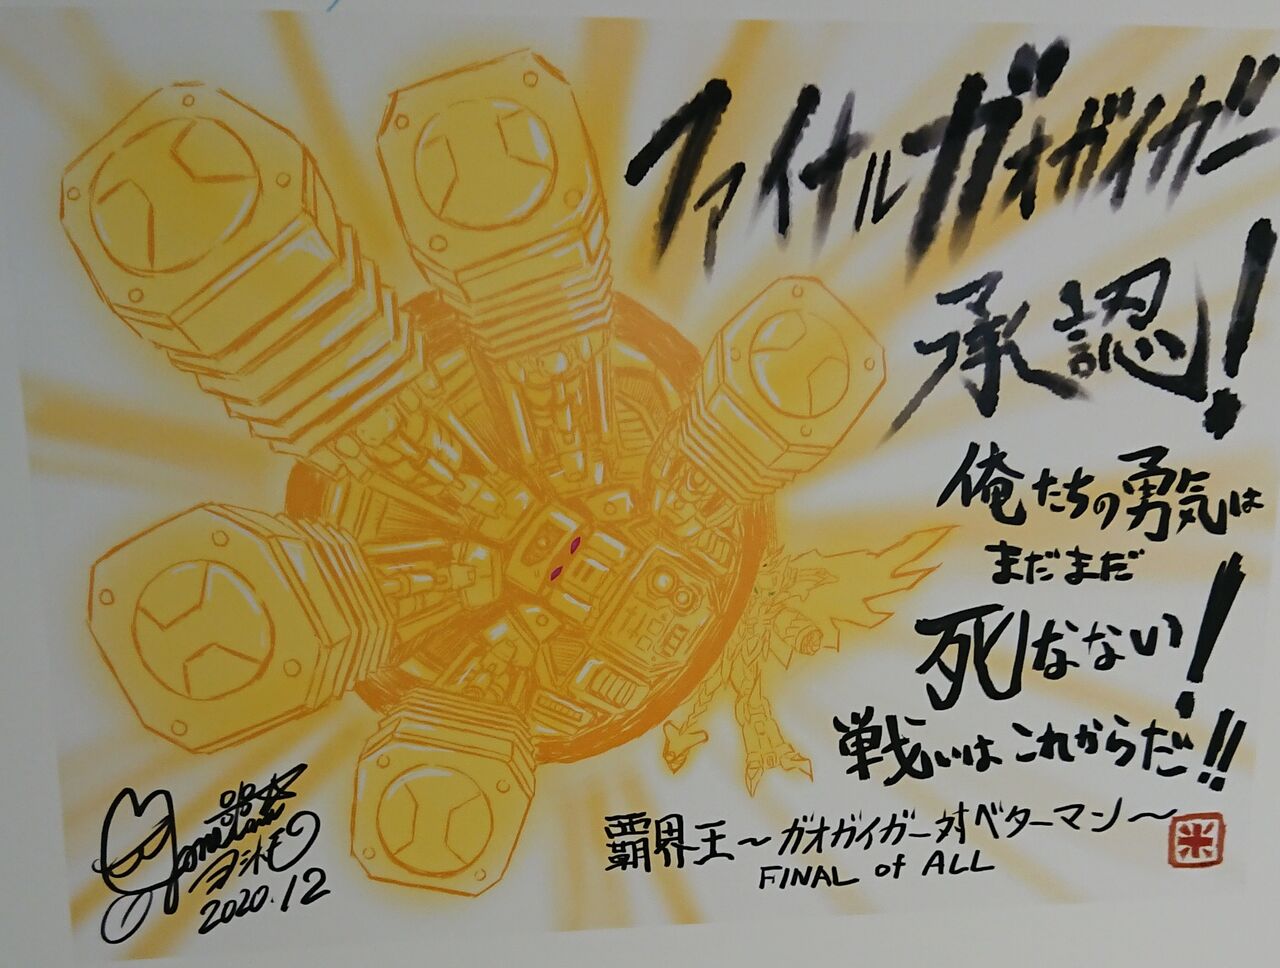 ファイナルガオガイガー
承認!
俺たちの勇気は
まだまだ
死なない!
戦いはこれからだ!!
覇界王~ガオガイガー対ベターマン~
FINAL of ALL
米
2020.12